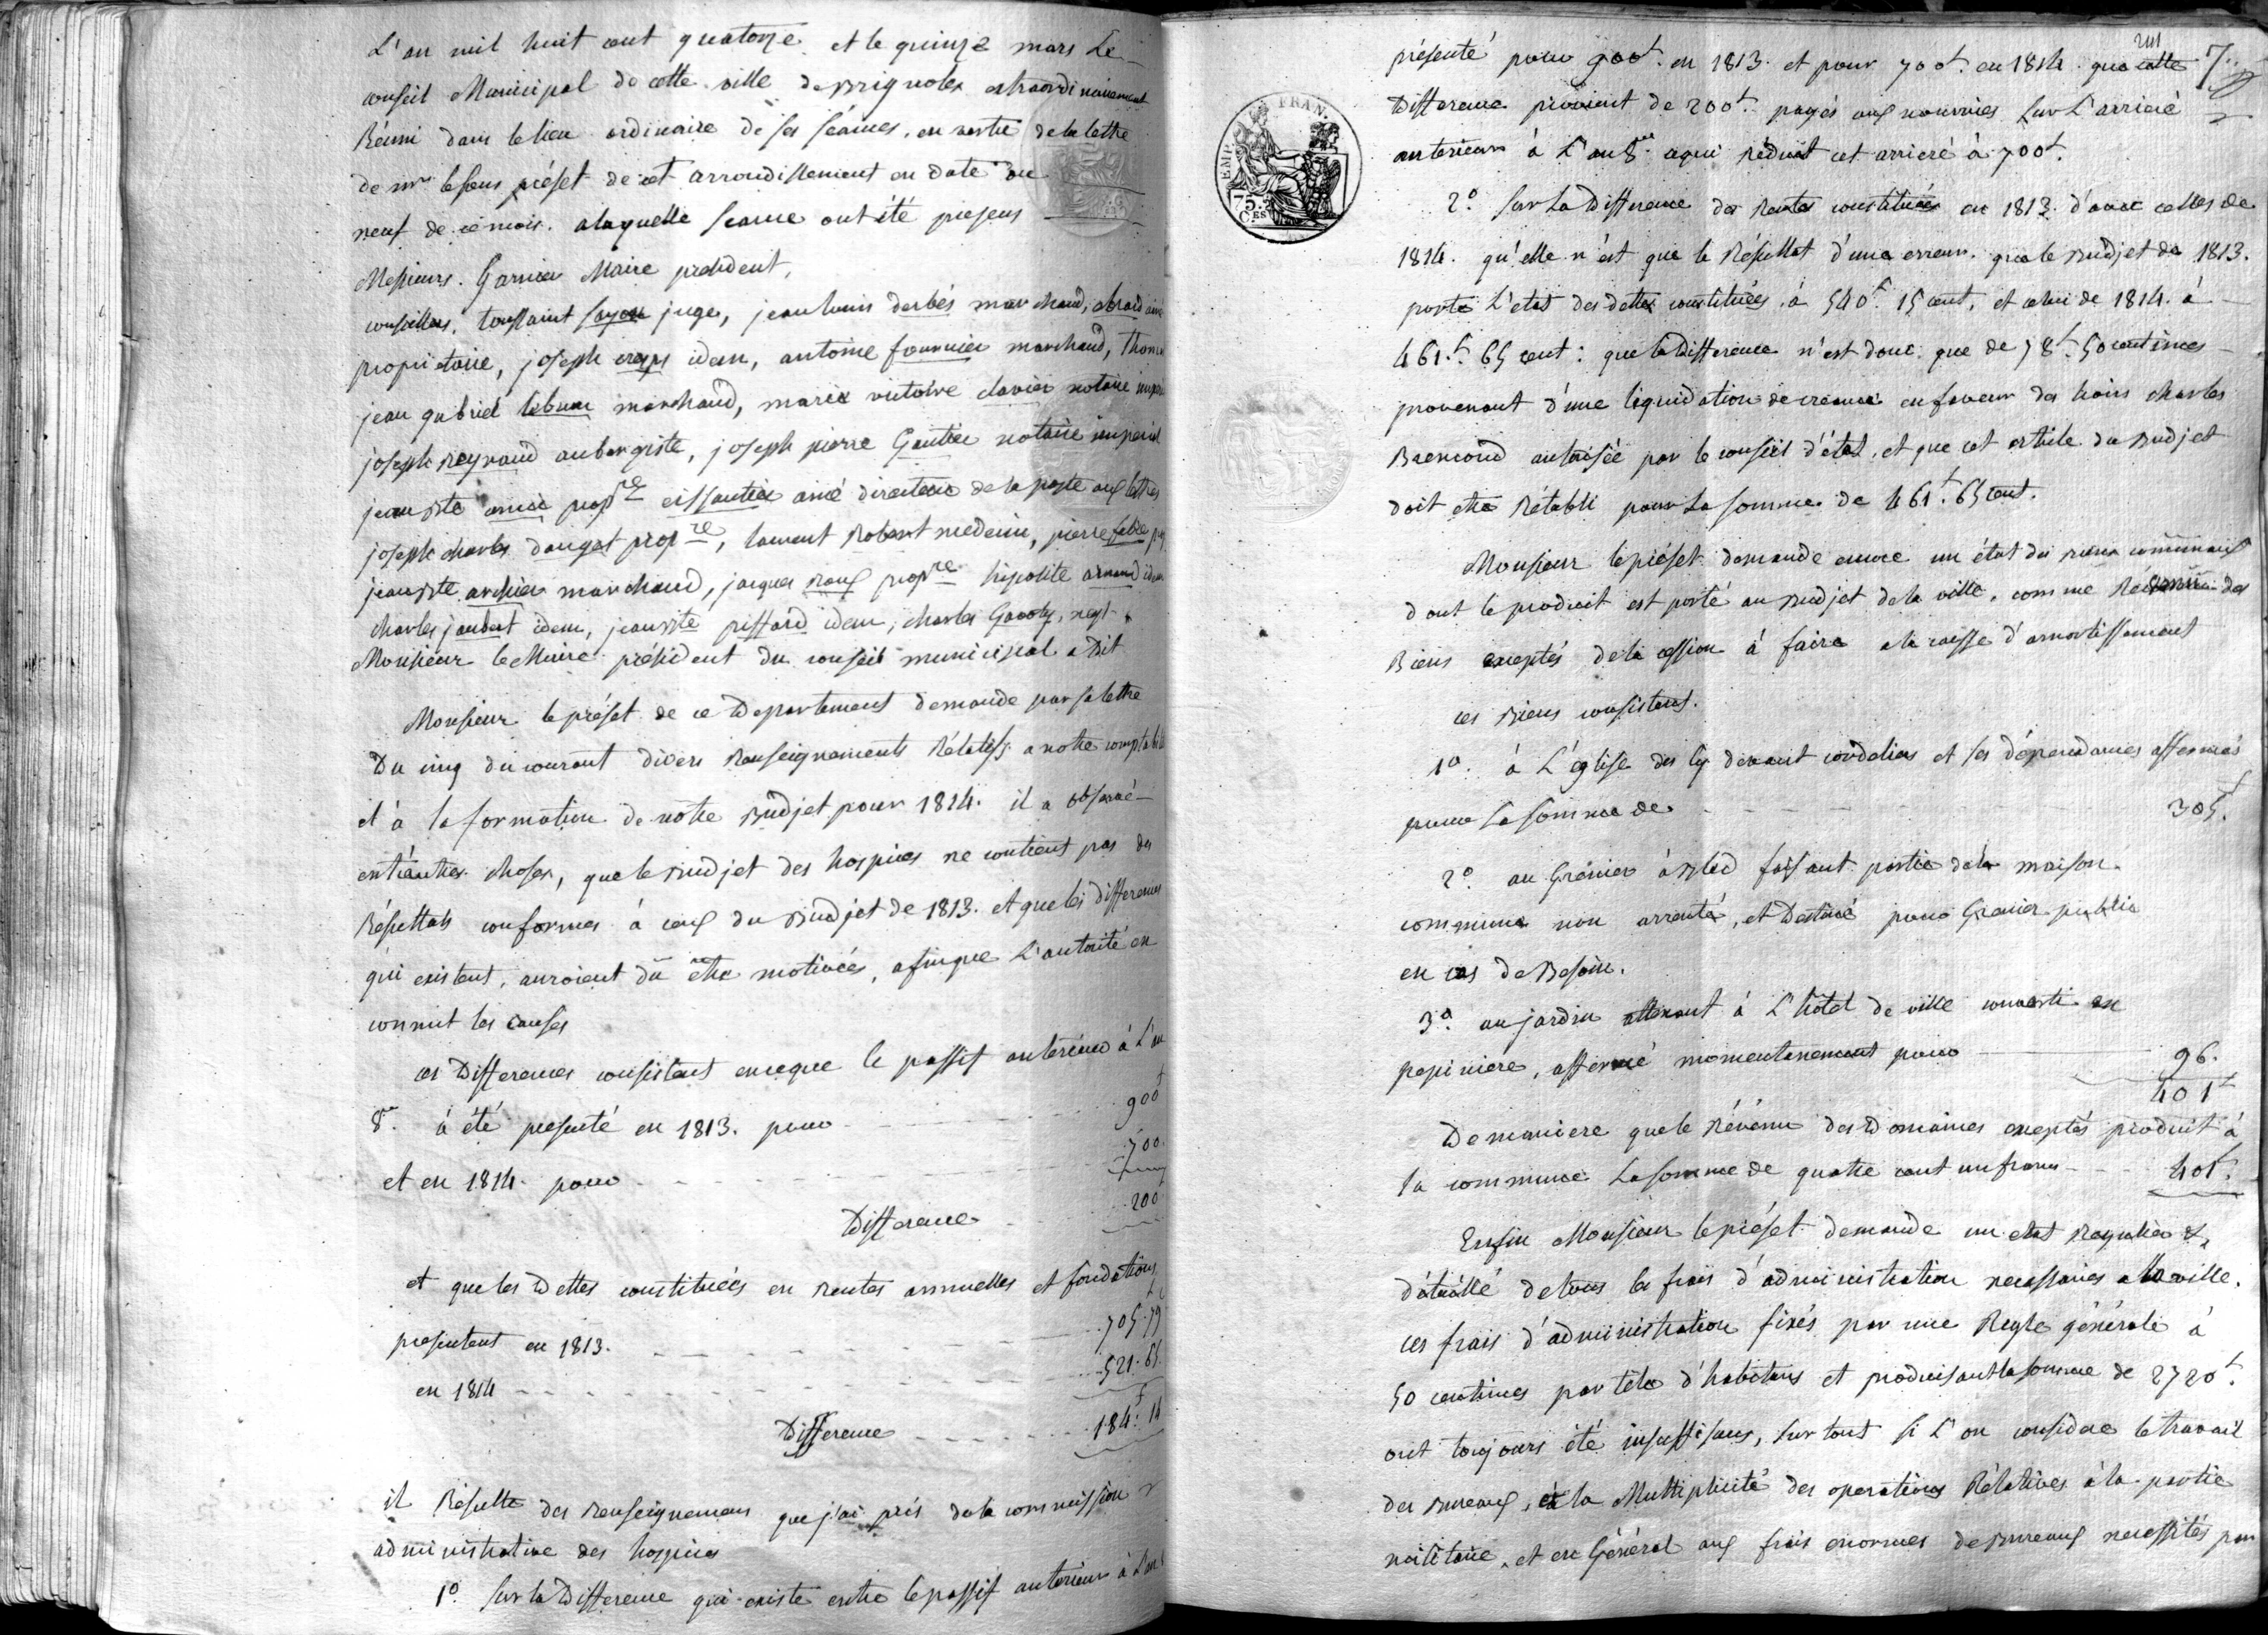 L'an mil huit cent quatorze et le quinze mars Le
conseil Municipal de cette ville de Brignoles extraordinairement
Réuni dans le lieu ordinaire de ses séances, en vertu de la lettre
de mr le sous préfet de cet arrondissement en date du
neuf de ce mois. a laquelle seance ont été presens
Messieurs. Garnier Maire president,
conseillers, toussaint juge, jean louis derbés marchand, ainé
proprietaire, joseph idem, antoine fournier marchand, thomas
jean gabriel lebrun marchand, marie victoire clavier notaire imperial
joseph Reynaud aubergiste, joseph pierre Gautier notaire imperial
jean Bte propre eissautier ainé directeur de la poste aux lettres
joseph charles dauget propre, laurent Robert medecin, pierre
jean Bte archier marchand, jacques Roux propre hipolite arnaud idem
charles joubert idem, jean Bte piffard idem, charles negt
Monsieur le Maire président du conseil municipal a Dit
Monsieur le préfet de ce Departement demande par sa lettre
Du cinq du courant divers Renseignements Rélatifs a notre comptabilité
et à la formation de notre Budjet pour 1814. il a observé
entr'autres choses, que le Budjet des hospices ne contient pas des
Résultats conformes à ceux du Budjet de 1813. et que les differences
qui existent, auroient dû être motivées, afin que L'autorité en
connut les causes
ces Differences consistent en ce que le passif anterieur à L'an
8e. à été presenté en 1813. pour 900f
et en 1814. pour 700.
Difference 200
et que les Dettes constituées en Rentes annuelles et fondations
presentent en 1813. 705.79
en 1814 521.65.
Difference 184f. 14
il Résulte des Renseignemens que j'ai pris de la commission
administrative des hospices
1o. Sur la Difference qui existe entre le passif anterieur à L'an 8
7
présenté pour 900f. en 1813. et pour 700f. en 1814. que cette
Difference provient de 200f. payés aux nourrices sur L'arrieré
anterieur à L'an 8e ce qui réduit cet arrieré à 700f.
2o. Sur La Difference des Rentes constituées en 1813. d'avec celles de
1814. qu'elle n'est que le Résultat d'une erreur. que le Budjet de 1813.
porte L'etat des dettes constituées, à 540f. 15 cent, et celui de 1814. à
461.f 65 cent: que la Difference n'est donc que de 78f. 50 centimes
provenant d'une liquidation de creance en faveur des hoirs charles
Bremond autorisée par le conseil d'état, et que cet article du Budjet
doit etre Rétabli pour La somme de 461f. 65 cent.
Monsieur le préfet demande encore un état des Biens communaux
dont le produit est porté au Budjet de la ville, comme Révenu des
Biens exceptés de la cession à faire a la caisse d'amortissement
ces Biens consistent.
1o. à L'église des cy devant cordeliers et ses dépendances affermés
pour La somme de 305.f
2o. au Grénier à Bled faisant partie de la maison
commune non arrenté, et Destiné pour Grenier public
en cas de Besoin.
3o. au jardin attenant à L'hôtel de ville converti en
pepiniere, affermé momentanement pour 96.
401f
De maniere que le Révénu des Domaines exceptés produit à
la commune La somme de quatre cent un francs 401f.
Enfin Monsieur le préfet demande un etat Regulier &
détaillé de tous les frais d'administration necessaires a la ville.
ces frais d'administration fixés par une Regle générale à
50 centimes par tête d'habitans et produisant la somme de 2720f.
ont toujours été insuffisans, sur tout si L'on considere le travail
des Bureaux, à la Multiplicité des operations Rélatives à la partie
militaire, et en Général aux frais enormes de Bureaux necessités par
FRAN.
EMP.
75.
C.ES